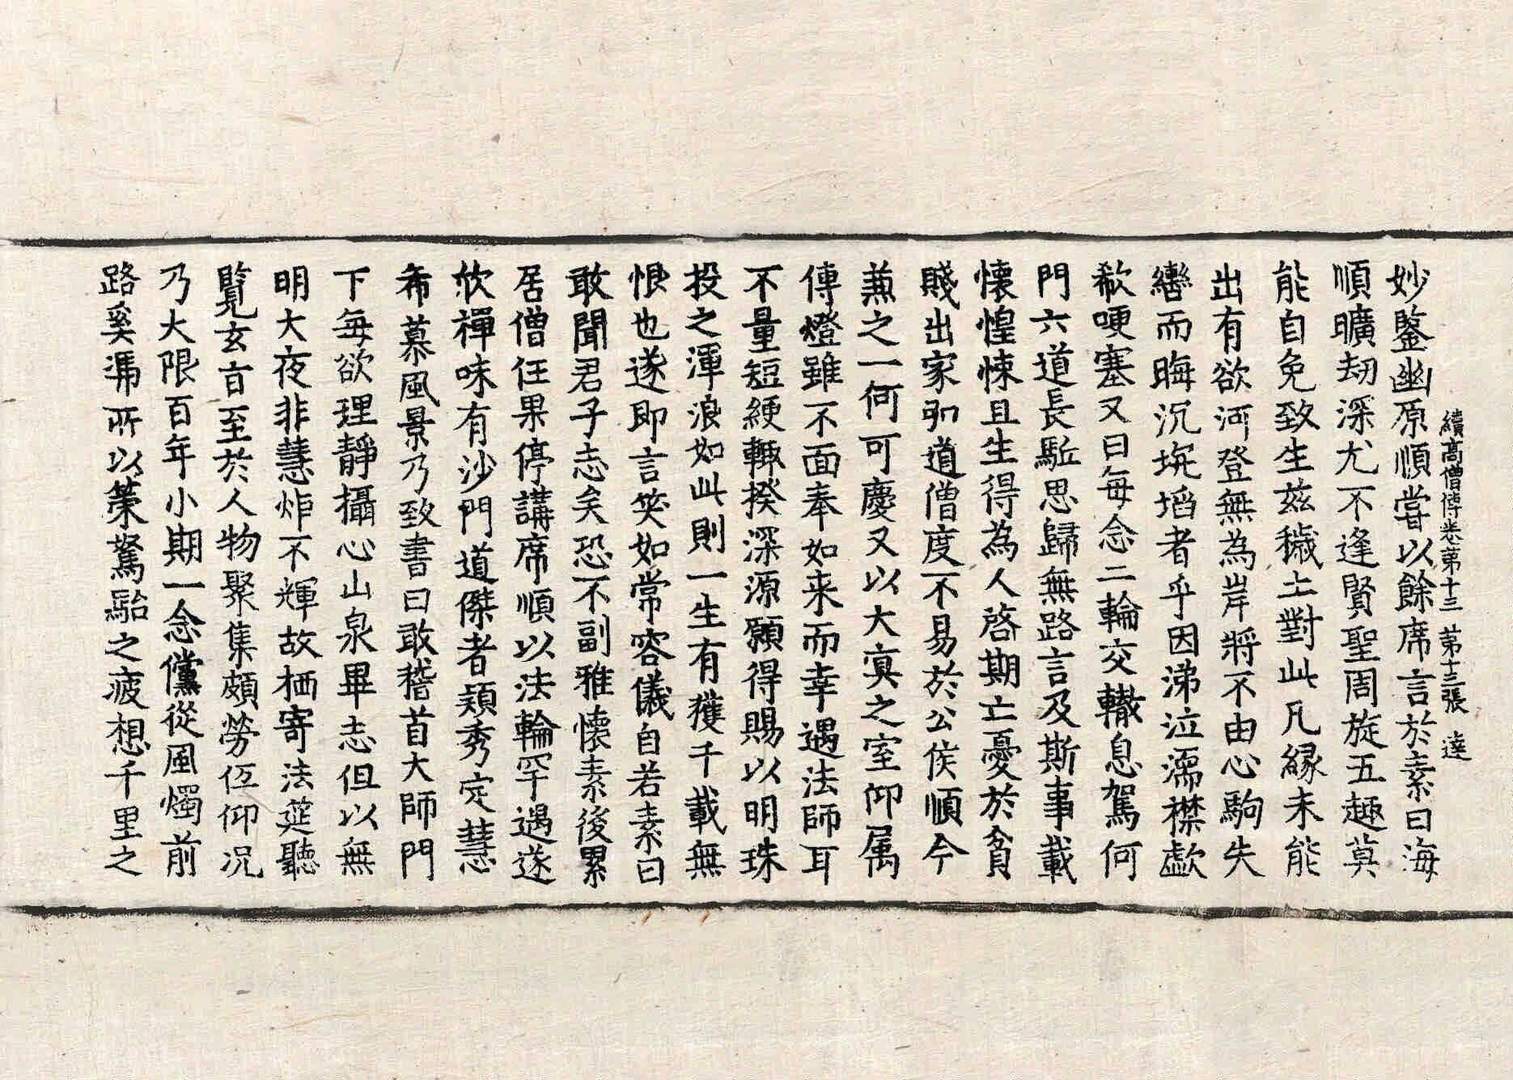 續高僧傳卷第十三 第十三張 達
妙鑒幽原順嘗以餘席言於素曰海
順曠劫深尤不逢賢聖周旋五趣莫
能自免致生茲穢土對此凡緣未能
出有欲河登無為岸將不由心駒失
轡而晦沉埦㙛者乎因涕泣濡襟歔
欷哽塞又曰每念二輪交轍息駕何
門六道長駈思歸無路言及斯事載
懷惶悚且生得為人啓期亡憂於貧
賤出家弘道僧度不易於公侯順今
兼之一何可慶又以大㝠之室仰属
傳燈雖不面奉如来而幸遇法師耳
不量短綆輙揆深源願得賜以明珠
投之渾浪如此則一生有獲千載無
恨也遂即言笑如常容儀自若素曰
敢聞君子志矣恐不副雅懷素後累
居僧任果停講席順以法輪罕遇遂
欣禪味有沙門道傑者穎秀定慧
希慕風景乃致書曰敢稽首大師門
下每欲理靜攝心山泉畢志但以無
明大夜非慧炬不輝故栖寄法莚聽
覽玄盲至於人物聚集頗勞伍仰況
乃大限百年小期一念儻從風燭前
路奚馮所以策駑駘之疲想千里之